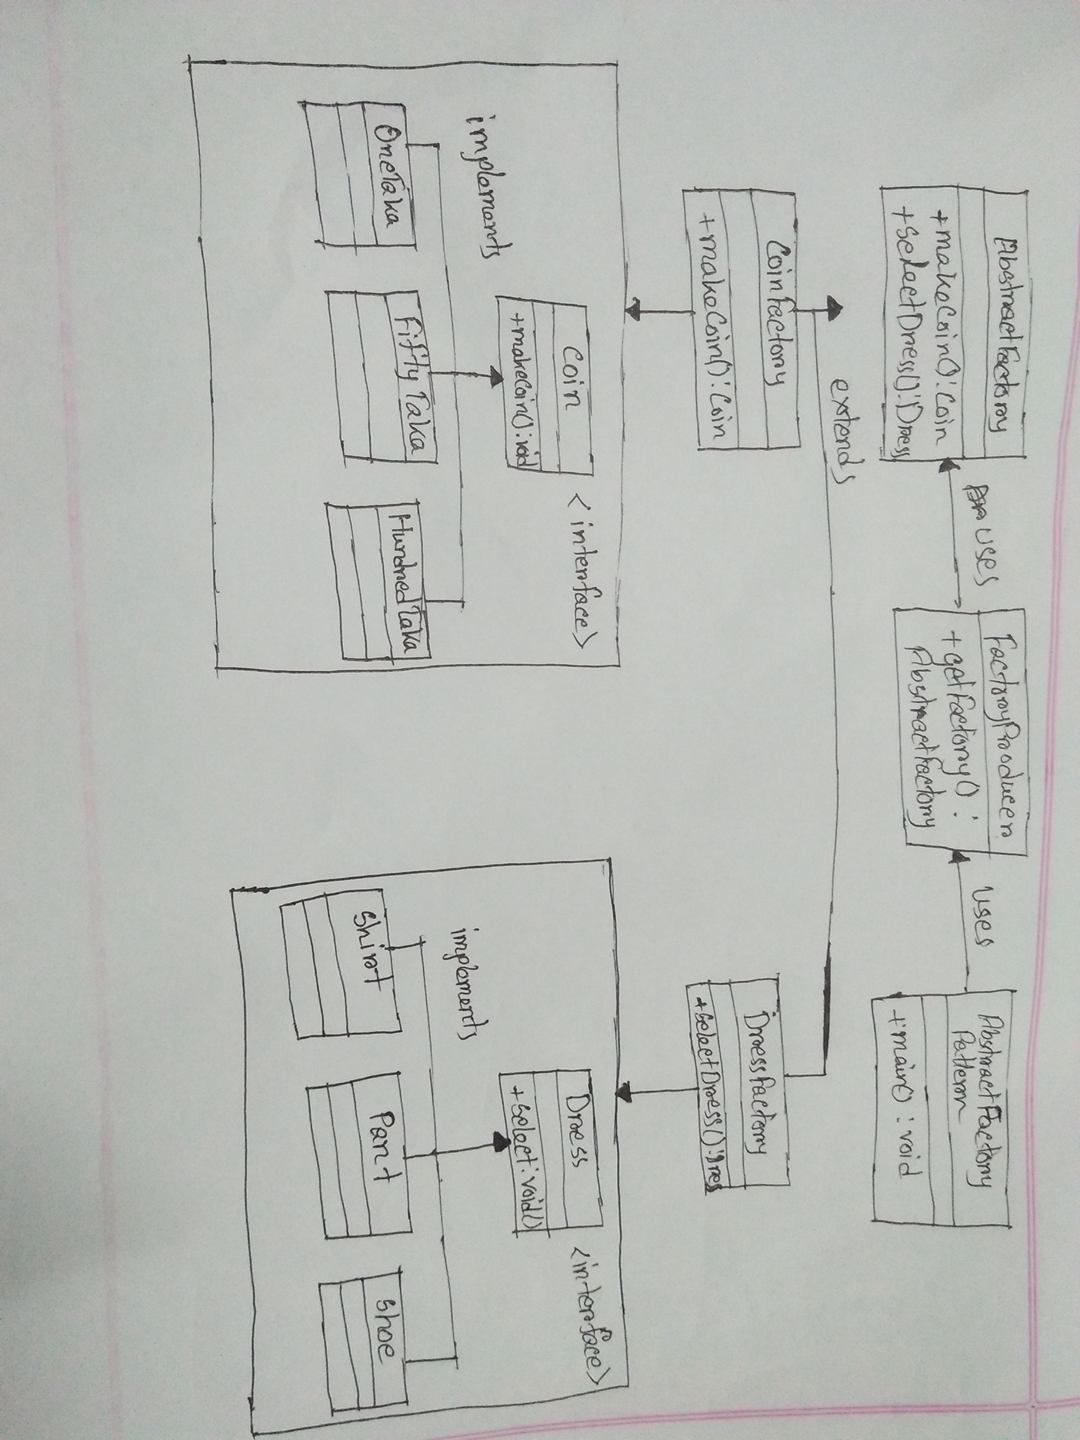 AbstractFactory
+makeCoin():Coin
+SelectDress():Dress
uses
FactoryProducer
+getFactory() :
AbstractFactory
uses
AbstractFactory
Pattern
+main() : void
extends
CoinFactory
+makeCoin():Coin
DressFactory
+SelectDress():Dres
Coin
<interface>
+makeCoin():void
implements
OneTaka
Fifty Taka
HundredTaka
Dress
<interface>
+Select:void()
implements
Shirt
Pant
Shoe